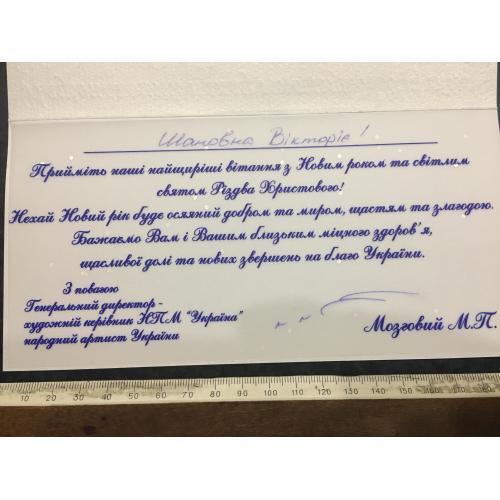 Шановна Вікторіє!
Прийміть наші найщиріші вітання з Новим роком та світлим
святом Різдва Христового!
Нехай Новий рік буде осяяний добром та миром, щастям та злагодою.
Бажаємо Вам і Вашим близьким міцного здоров'я,
щасливої долі та нових звершень на благо України.
З повагою
Генеральний директор -
художній керівник НПМ "Україна"
народний артист України
Мозговий М.П.
10 20 30 40 50 60 70 80 90 100 110 120 130 140 150 160 170 180